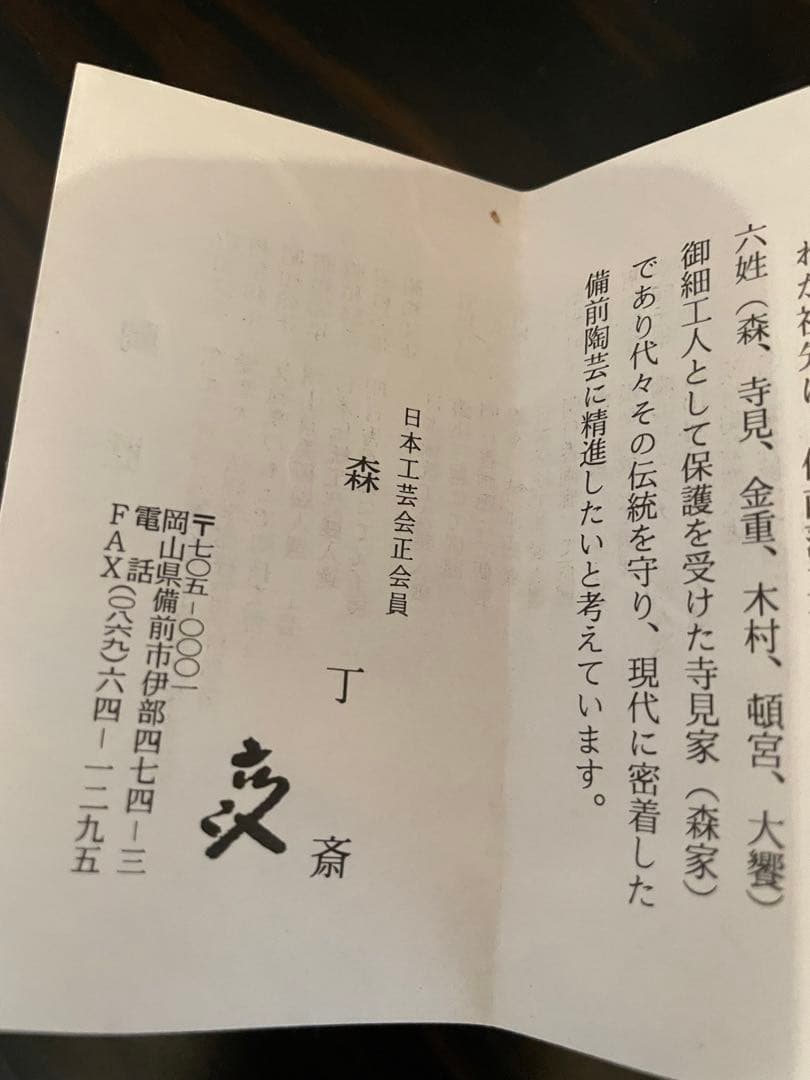 わが祖先は、備前
六姓（森、寺見、金重、木村、頓宮、大饗）
御細工人として保護を受けた寺見家（森家）
であり代々その伝統を守り、現代に密着した
備前陶芸に精進したいと考えています。
日本工芸会正会員
森 丁 斎
〒七〇五－〇〇〇一
岡山県備前市伊部四七四－三
電話
ＦＡＸ（〇八六九）六四－一二九五